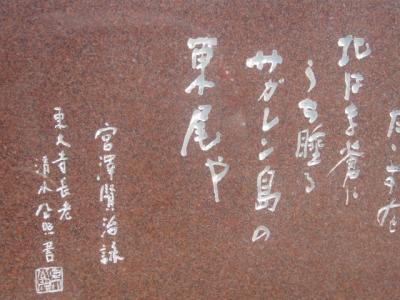 たゝずを
北はま蒼に
うち睡る
サガレン島の
東尾や
宮澤賢治詠
東大寺長老
清水公照書